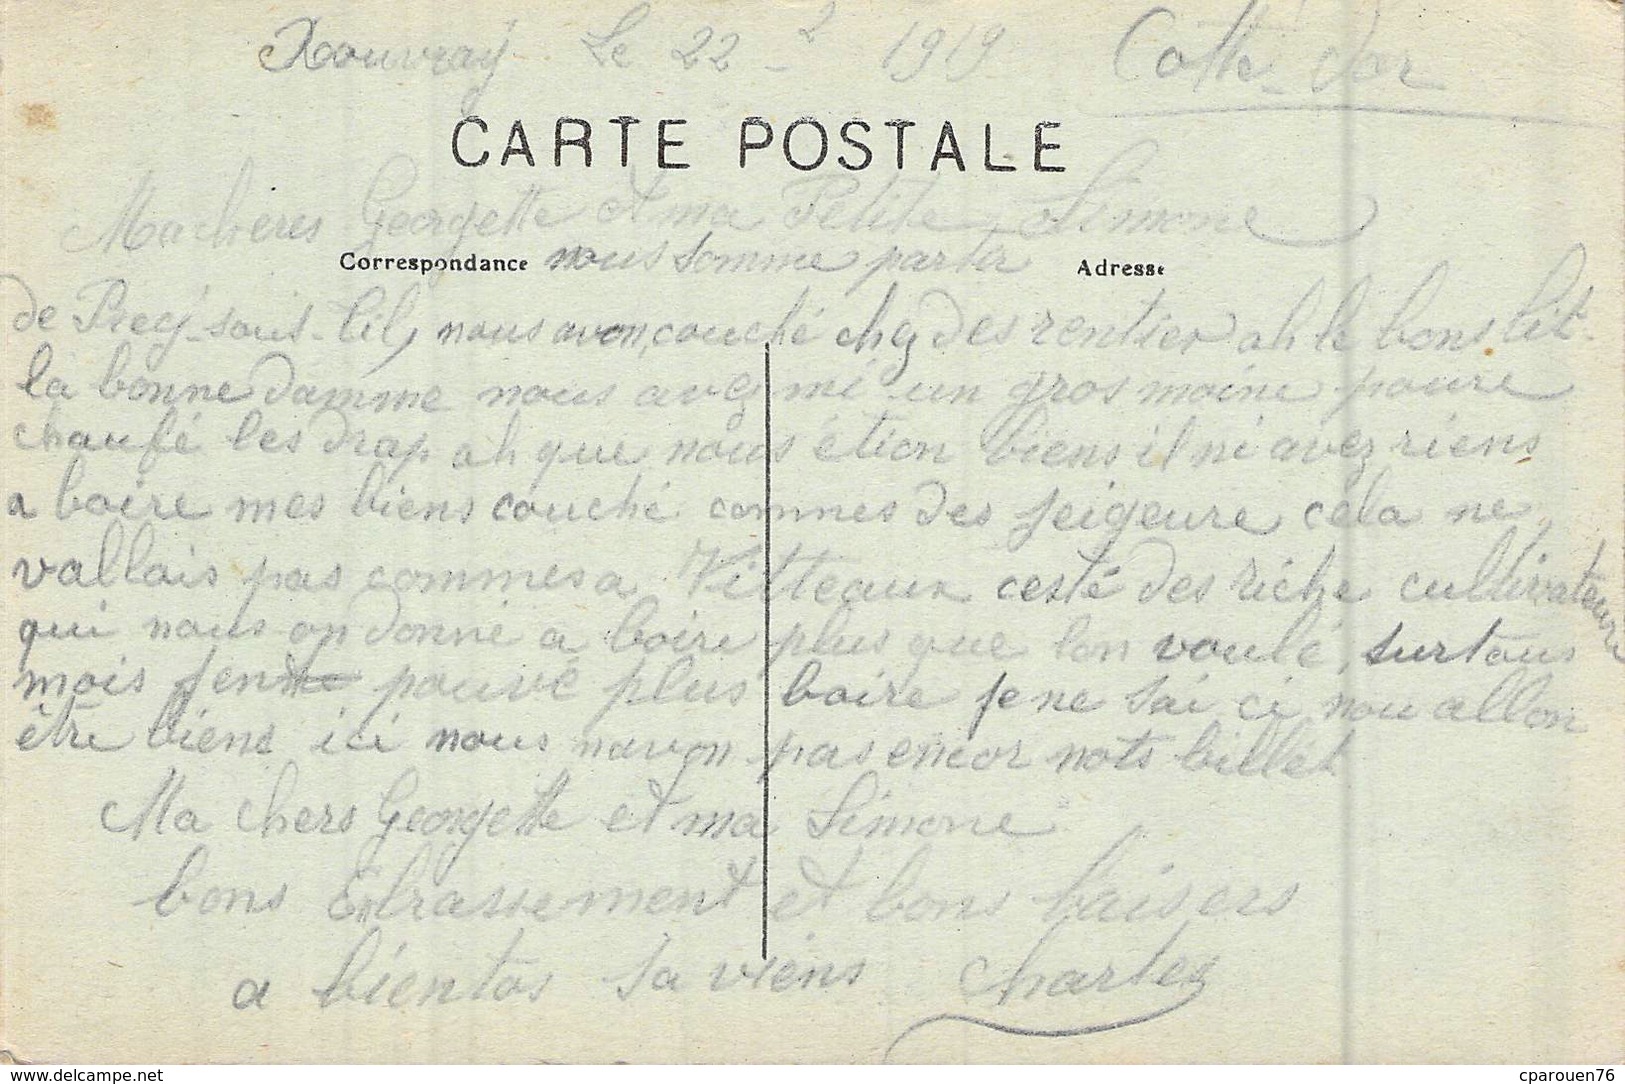 Rouvray Le 22 - 2 1919 Cotte - dor
CARTE POSTALE
Ma cheres Georgette et ma Petite Simone
Correspondance nous somme partir Adresse
de Precy-sous-til, nous avon couché chez des rentier ah le bons lit
la bonne damme nous avez mi un gros moine poure
chaufé les drap ah que nous étion biens il ni avez riens
a boire mes biens couché commes des seigeure, cela ne
vallais pas commes a Vitteaux cesté des riche cultivateur
qui nous on donné a boire plus que lon voulé, surtous
mois jen pouvé plus boire je ne sai ci nou allon
être biens ici nous navon pas encor nots billet
Ma chers Georgette et ma Simone
bons Enbrassement et bons baisers
a bientos sa viens Charles
www.delcampe.net
cparouen76